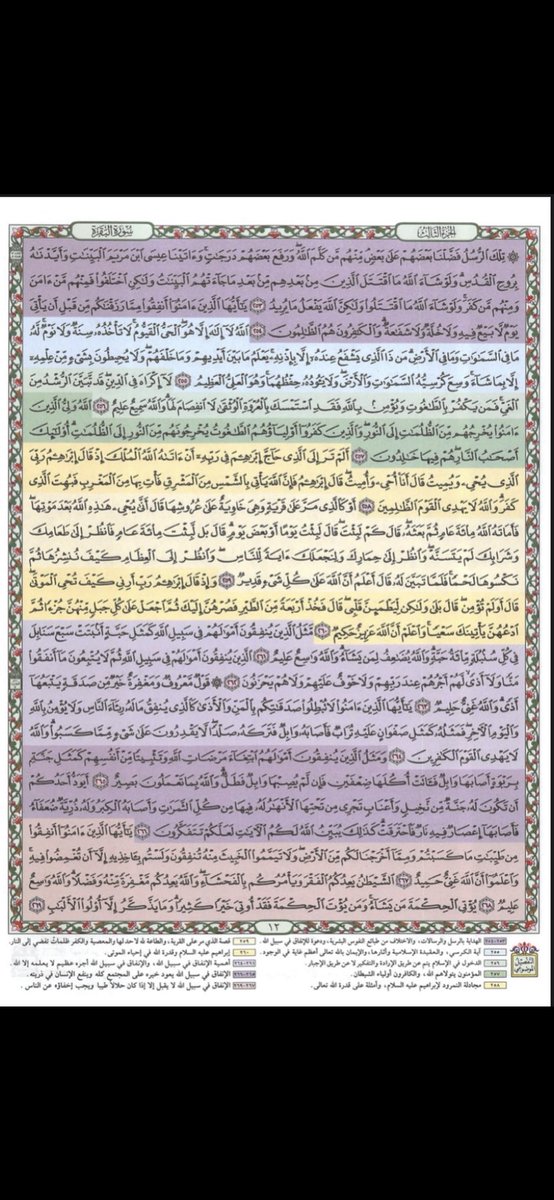 الجزء الثالث
سورة البقرة
۞ تلك الرسل فضلنا بعضهم على بعض منهم من كلم الله ورفع بعضهم درجت وءاتينا عيسى ابن مريم البينت وأيدنه
بروح القدس ولو شاء الله ما اقتتل الذين من بعدهم من بعد ما جاءتهم البينت ولكن اختلفوا فمنهم من ءامن
ومنهم من كفر ولو شاء الله ما اقتتلوا ولكن الله يفعل ما يريد ٢٥٣ يأيها الذين ءامنوا أنفقوا مما رزقنكم من قبل أن يأتي
يوم لا بيع فيه ولا خلة ولا شفعة والكفرون هم الظلمون ٢٥٤ الله لا إله إلا هو الحي القيوم لا تأخذه سنة ولا نوم له
ما في السموت وما في الأرض من ذا الذي يشفع عنده إلا بإذنه يعلم ما بين أيديهم وما خلفهم ولا يحيطون بشيء من علمه
إلا بما شاء وسع كرسيه السموت والأرض ولا يئوده حفظهما وهو العلي العظيم ٢٥٥ لا إكراه في الدين قد تبين الرشد من
الغي فمن يكفر بالطغوت ويؤمن بالله فقد استمسك بالعروة الوثقى لا انفصام لها والله سميع عليم ٢٥٦ الله ولي الذين
ءامنوا يخرجهم من الظلمت إلى النور والذين كفروا أولياؤهم الطغوت يخرجونهم من النور إلى الظلمت أولئك
أصحب النار هم فيها خلدون ٢٥٧ ألم تر إلى الذي حاج إبرهم في ربه أن ءاتىه الله الملك إذ قال إبرهم ربي
الذي يحي ويميت قال أنا أحي وأميت قال إبرهم فإن الله يأتي بالشمس من المشرق فأت بها من المغرب فبهت الذي
كفر والله لا يهدي القوم الظلمين ٢٥٨ أو كالذي مر على قرية وهي خاوية على عروشها قال أنى يحي هذه الله بعد موتها
فأماته الله مائة عام ثم بعثه قال كم لبثت قال لبثت يوما أو بعض يوم قال بل لبثت مائة عام فانظر إلى طعامك
وشرابك لم يتسنه وانظر إلى حمارك ولنجعلك ءاية للناس وانظر إلى العظام كيف ننشزها ثم
نكسوها لحما فلما تبين له قال أعلم أن الله على كل شيء قدير ٢٥٩ وإذ قال إبرهم رب أرني كيف تحي الموتى
قال أولم تؤمن قال بلى ولكن ليطمئن قلبي قال فخذ أربعة من الطير فصرهن إليك ثم اجعل على كل جبل منهن جزءا ثم
ادعهن يأتينك سعيا واعلم أن الله عزيز حكيم ٢٦٠ مثل الذين ينفقون أمولهم في سبيل الله كمثل حبة أنبتت سبع سنابل
في كل سنبلة مائة حبة والله يضعف لمن يشاء والله وسع عليم ٢٦١ الذين ينفقون أمولهم في سبيل الله ثم لا يتبعون ما أنفقوا
منا ولا أذى لهم أجرهم عند ربهم ولا خوف عليهم ولا هم يحزنون ٢٦٢ ۞ قول معروف ومغفرة خير من صدقة يتبعها
أذى والله غني حليم ٢٦٣ يأيها الذين ءامنوا لا تبطلوا صدقتكم بالمن والأذى كالذي ينفق ماله رئاء الناس ولا يؤمن بالله
واليوم الأخر فمثله كمثل صفوان عليه تراب فأصابه وابل فتركه صلدا لا يقدرون على شيء مما كسبوا والله
لا يهدي القوم الكفرين ٢٦٤ ومثل الذين ينفقون أمولهم ابتغاء مرضات الله وتثبيتا من أنفسهم كمثل جنة
بربوة أصابها وابل فءاتت أكلها ضعفين فإن لم يصبها وابل فطل والله بما تعملون بصير ٢٦٥ أيود أحدكم
أن تكون له جنة من نخيل وأعناب تجري من تحتها الأنهر له فيها من كل الثمرت وأصابه الكبر وله ذرية ضعفاء
فأصابها إعصار فيه نار فاحترقت كذلك يبين الله لكم الأيت لعلكم تتفكرون ٢٦٦ يأيها الذين ءامنوا أنفقوا
من طيبت ما كسبتم ومما أخرجنا لكم من الأرض ولا تيمموا الخبيث منه تنفقون ولستم بءاخذيه إلا أن تغمضوا فيه
واعلموا أن الله غني حميد ٢٦٧ الشيطن يعدكم الفقر ويأمركم بالفحشاء والله يعدكم مغفرة منه وفضلا والله وسع
عليم ٢٦٨ يؤتي الحكمة من يشاء ومن يؤت الحكمة فقد أوتي خيرا كثيرا وما يذكر إلا أولوا الألبب ٢٦٩
١٢
التفصيل الموضوعي
٢٥٣-٢٥٤ الهداية بالرسل والرسالات، والاختلاف من طبائع النفوس البشرية، ودعوة للإنفاق في سبيل الله.
٢٥٥ آية الكرسي، والعقيدة الإسلامية وآثارها، والإيمان بالله تعالى أعظم غاية في الوجود.
٢٥٦ الدخول في الإسلام يتم عن طريق الإرادة والتفكير لا عن طريق الإجبار.
٢٥٧ المؤمنون يتولاهم الله، والكافرون أولياء الشيطان.
٢٥٨ مجادلة النمرود لإبراهيم عليه السلام، وأمثلة على قدرة الله تعالى.
٢٥٩ قصة الذي مر على القرية، والطاعة لله لا حد لها والمعصية والكفر ظلمات تفضي إلى النار.
٢٦٠ إبراهيم عليه السلام وقدرة الله في إحياء الموتى.
٢٦١-٢٦٤ أهمية الإنفاق في سبيل الله، والإنفاق في سبيل الله أجره عظيم لا يعلمه إلا الله.
٢٦٥-٢٦٦ الإنفاق في سبيل الله يعود خيره على المجتمع كله وينفع الإنسان في ذريته.
٢٦٧-٢٦٩ الإنفاق في سبيل الله لا يقبل إلا إذا كان حلالاً طيبا ويجب إخفاؤه عن الناس.